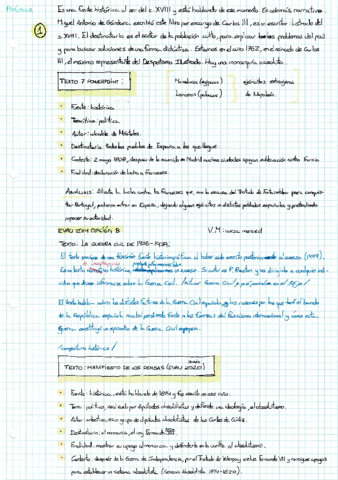 POLÍTICA
1
Es una Carta histórica del s. XVIII y está hablando de ese momento. Es además narrativa.
Miguel Antonio de Gándara escribió este libro por encargo de Carlos III, es un escritor ilustrado del
s. XVIII. El destinatario es el sector de la población culto, para explicar los problemas del país
y para buscar soluciones de una forma didáctica. Estamos en el año 1762, en el reinado de Carlos
III, el máximo representante del Despotismo Ilustrado. Hay una monarquía absolutista.
TEXTO 7 POWERPOINT:
Mamelucos (egipcios)
Lanceros (polacos)
ejércitos extranjeros
de Napoleón.
Fuente: histórica
Temática: política.
Autor: alcalde de Móstoles.
Destinatario: todos los pueblos de España a los que llegue.
Contexto: 2 mayo 1808, después de la en Madrid muchas ciudades apoyan sublevación contra Francia.
Finalidad: declaración de lucha a franceses.
ANÁLISIS: Alienta la lucha contra los franceses que, con la excusa del Tratado de Fontainebleau para conquis-
tar Portugal, pudieron entrar en España, dejando algunos ejércitos en distintos poblados españoles y pretendiendo
EVAU 2014 OPCIÓN B
V.M: vuesa merced
TEXTO: LA GUERRA CIVIL DE 1936-1939.
El texto procede de una fuente historiográfica al haber sido escrito posteriormente al suceso (1999).
Es un texto histórico. Su autor es P. Preston y va dirigido a cualquier indi-
viduo que desee informarse sobre la Guerra Civil.
El texto habla sobre los distintos factores de la Guerra Civil española y las razones por las que tanto el bando
de la República
Guerra constituyó un episodio de la Guerra Civil europea.
TEXTO: MANIFIESTO DE LOS PERSAS (EVAU 2020)
Fuente: histórica, está hablando de 1814 y fue escrito en ese año.
Tema: político, realizado por diputados absolutistas y defiende una ideología, el absolutismo.
Autor: colectivo, es un grupo de diputados absolutistas de las Cortes de Cádiz.
Destinatario: el monarca, el rey Fernando VII.
Finalidad: mostrar su apoyo al monarca y defenderle en la vuelta al absolutismo.
Contexto: después de la Guerra de Independencia, por el Tratado de Valençay vuelve Fernando VII y consigue apoyos
para establecer un sistema absolutista. (Sexenio Absolutista 1814-1820).